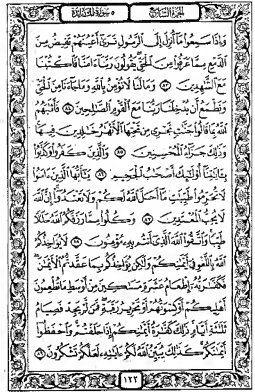 الجزء السابع ٥ سورة المائدة
وَإِذَا سَمِعُوا مَا أُنزِلَ إِلَى الرَّسُولِ تَرَىٰ أَعْيُنَهُمْ تَفِيضُ مِنَ
الدَّمْعِ مِمَّا عَرَفُوا مِنَ الْحَقِّ يَقُولُونَ رَبَّنَا ءَامَنَّا فَاكْتُبْنَا
مَعَ الشَّٰهِدِينَ ٨٣ وَمَا لَنَا لَا نُؤْمِنُ بِاللَّهِ وَمَا جَاءَنَا مِنَ الْحَقِّ
وَنَطْمَعُ أَن يُدْخِلَنَا رَبُّنَا مَعَ الْقَوْمِ الصَّٰلِحِينَ ٨٤ فَأَثَٰبَهُمُ
اللَّهُ بِمَا قَالُوا جَنَّٰتٍ تَجْرِي مِن تَحْتِهَا الْأَنْهَٰرُ خَٰلِدِينَ فِيهَا
وَذَٰلِكَ جَزَاءُ الْمُحْسِنِينَ ٨٥ وَالَّذِينَ كَفَرُوا وَكَذَّبُوا
بِـَٔايَٰتِنَا أُولَٰئِكَ أَصْحَٰبُ الْجَحِيمِ ٨٦ يَٰأَيُّهَا الَّذِينَ ءَامَنُوا
لَا تُحَرِّمُوا طَيِّبَٰتِ مَا أَحَلَّ اللَّهُ لَكُمْ وَلَا تَعْتَدُوا إِنَّ اللَّهَ
لَا يُحِبُّ الْمُعْتَدِينَ ٨٧ وَكُلُوا مِمَّا رَزَقَكُمُ اللَّهُ حَلَٰلًا
طَيِّبًا وَاتَّقُوا اللَّهَ الَّذِي أَنتُم بِهِ مُؤْمِنُونَ ٨٨ لَا يُؤَاخِذُكُمُ
اللَّهُ بِاللَّغْوِ فِي أَيْمَٰنِكُمْ وَلَٰكِن يُؤَاخِذُكُم بِمَا عَقَّدتُّمُ الْأَيْمَٰنَ
فَكَفَّٰرَتُهُ إِطْعَامُ عَشَرَةِ مَسَٰكِينَ مِنْ أَوْسَطِ مَا تُطْعِمُونَ
أَهْلِيكُمْ أَوْ كِسْوَتُهُمْ أَوْ تَحْرِيرُ رَقَبَةٍ فَمَن لَّمْ يَجِدْ فَصِيَامُ
ثَلَٰثَةِ أَيَّامٍ ذَٰلِكَ كَفَّٰرَةُ أَيْمَٰنِكُمْ إِذَا حَلَفْتُمْ وَاحْفَظُوا
أَيْمَٰنَكُمْ كَذَٰلِكَ يُبَيِّنُ اللَّهُ لَكُمْ ءَايَٰتِهِ لَعَلَّكُمْ تَشْكُرُونَ ٨٩
١٢٢